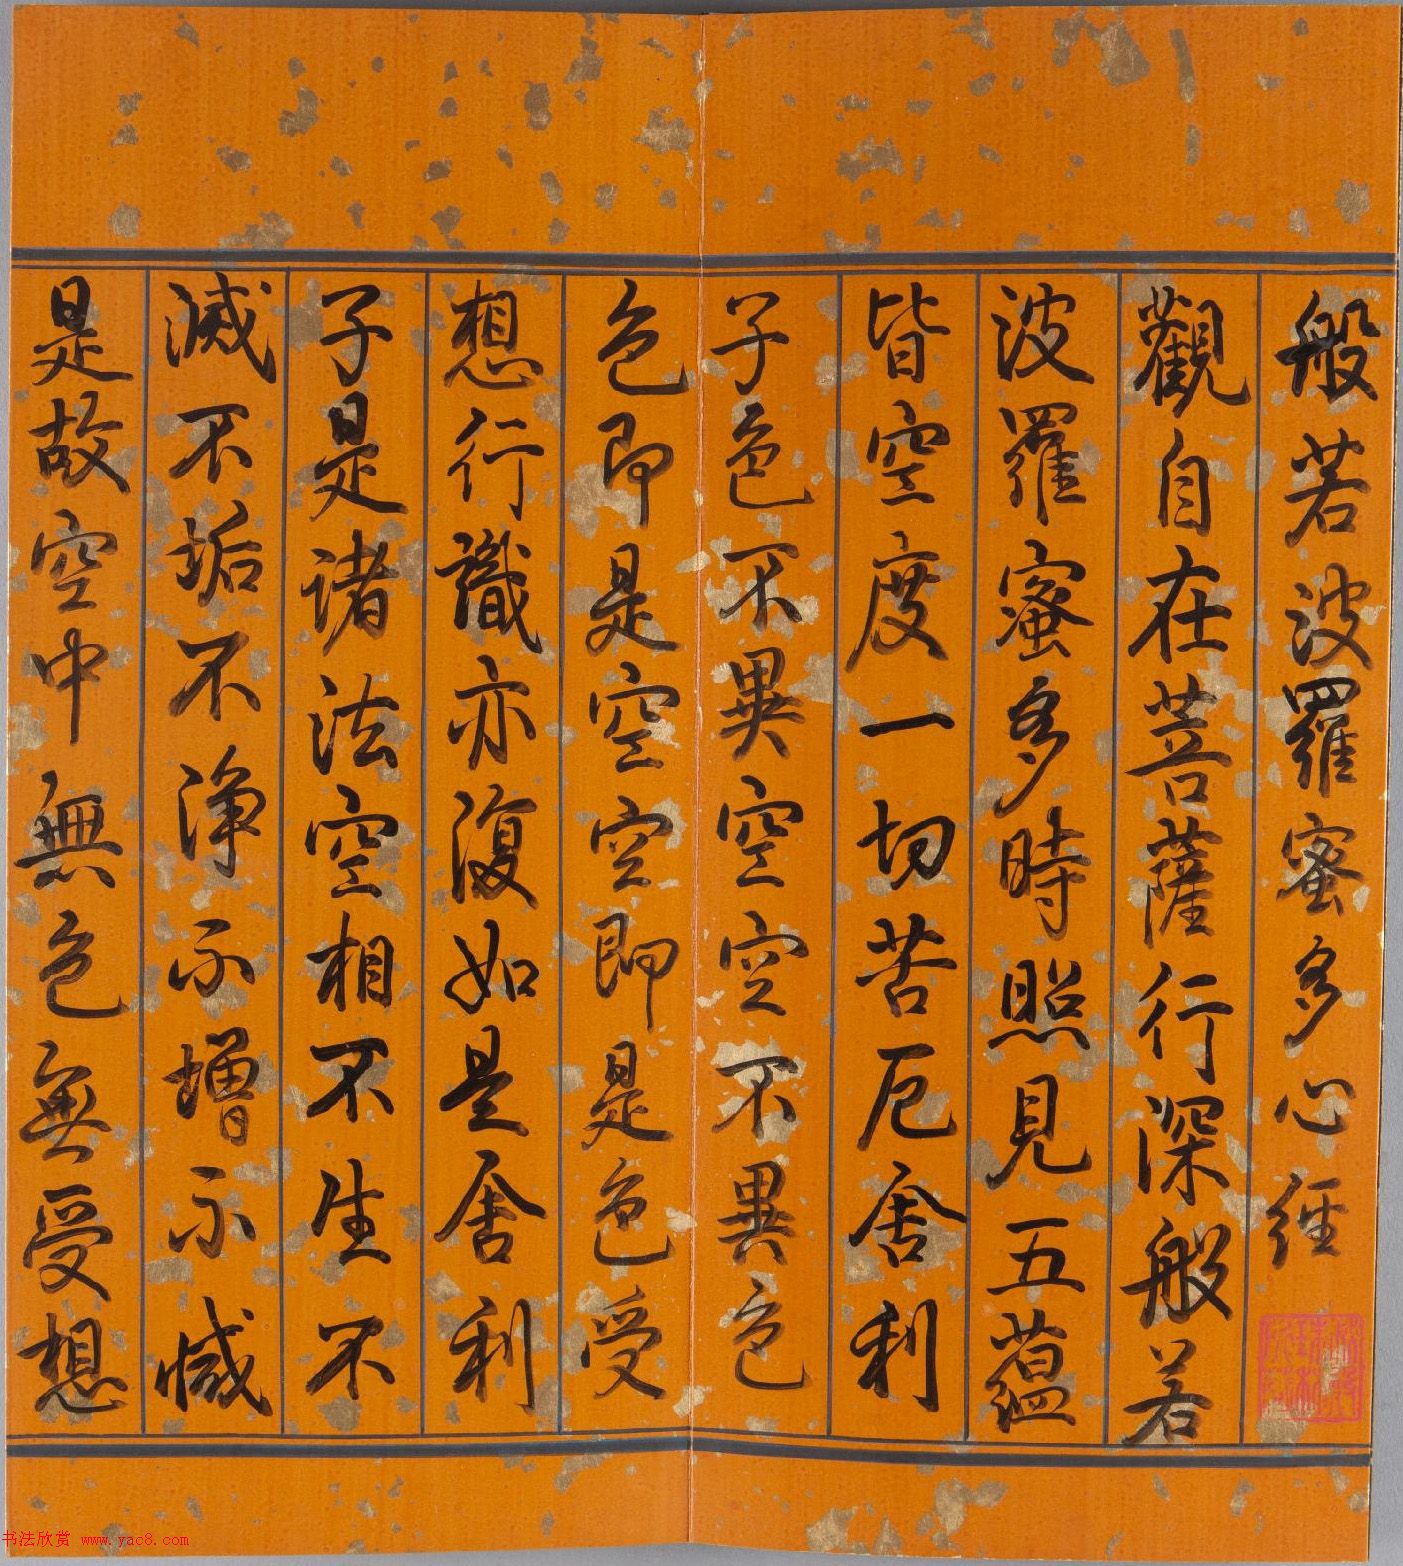 般若波羅蜜多心經
觀自在菩薩行深般若
波羅蜜多時照見五蘊
皆空度一切苦厄舍利
子色不異空空不異色
色即是空空即是色受
想行識亦復如是舍利
子是諸法空相不生不
滅不垢不淨不增不減
是故空中無色無受想
书法欣赏 www.yac8.com